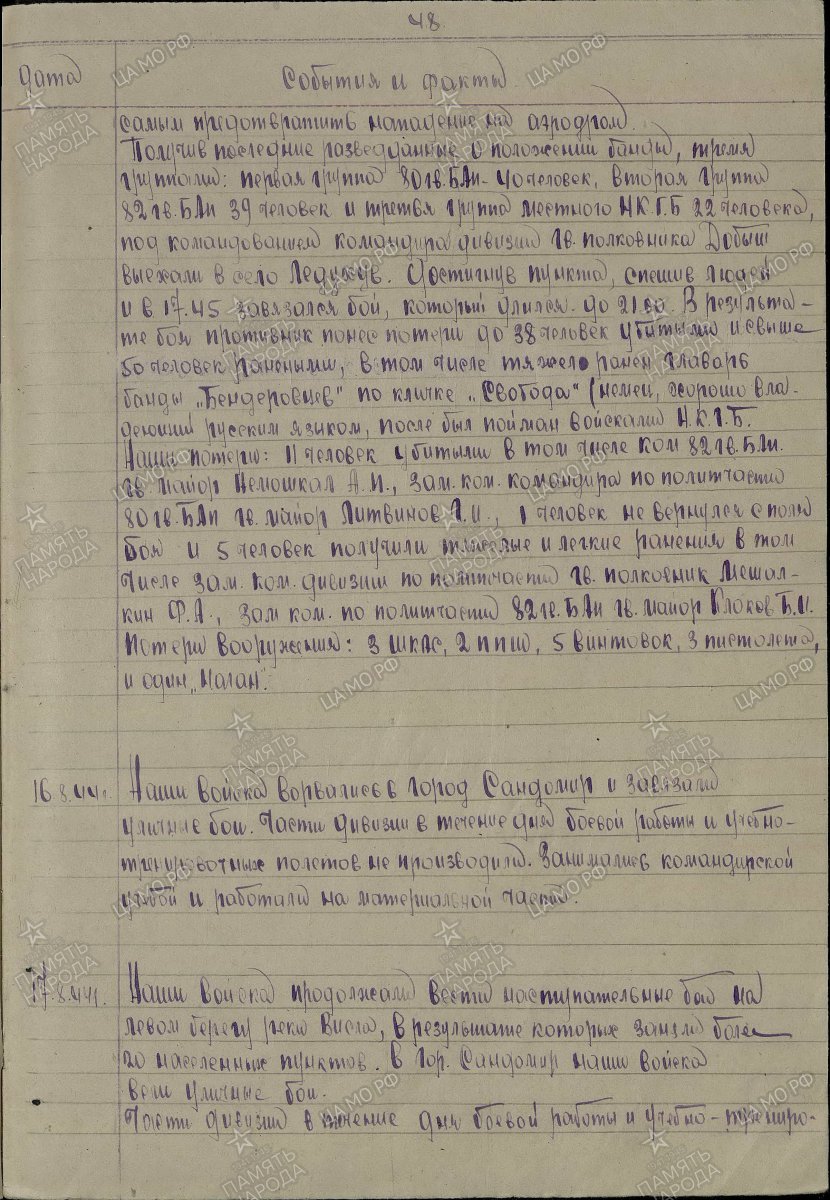 48
Дата События и факты
самым предотвратить нападение на аэродром.
Получив последние разведданные о положении банды, тремя
группами: первая группа 80 гв.БАп - 40 человек, вторая группа
82 гв.БАп 39 человек и третья группа местного Н.К.Г.Б 22 человека,
под командованием командира дивизии гв. полковника Добыш
выехали в село Ледухув. Достигнув пункта, спешив людей
и в 17.45 завязался бой, который длился до 21.00. В результа-
те боя противник понес потери до 38 человек убитыми и свыше
50 человек ранеными, в том числе тяжело ранен главарь
банды „Бендеровцев" по кличке „Свобода" (немец, хорошо вла-
деющий русским языком, после был пойман войсками Н.К.Г.Б.
Наши потери: 11 человек убитыми в том числе ком 82 гв.БАп.
гв. майор Немошкал А.И., зам. ком. командира по политчасти
80 гв.БАп гв. майор Литвинов Г.И., 1 человек не вернулся с поля
боя и 5 человек получили тяжелые и легкие ранения в том
числе зам. ком. дивизии по политчасти гв. полковник Мешал-
кин Ф.А., зам ком. по политчасти 82 гв.БАп гв. майор Клоков Б.И.
Потери вооружения: 3 шкас, 2 ппш, 5 винтовок, 3 пистолета,
и один „Наган".
16.8.44г. Наши войска ворвались в город Сандомир и завязали
уличные бои. Части дивизии в течение дня боевой работы и учебно-
тренировочных полетов не производили. Занимались командирской
учебой и работали на материальной части.
17.8.44г. Наши войска продолжали вести наступательные бои на
левом берегу реки Висла, в результате которых заняли более
20 населенных пунктов. В гор. Сандомир наши войска
вели уличные бои.
Части дивизии в течение дня боевой работы и учебно-трениро-
ПАМЯТЬ НАРОДА
ЦАМО.РФ